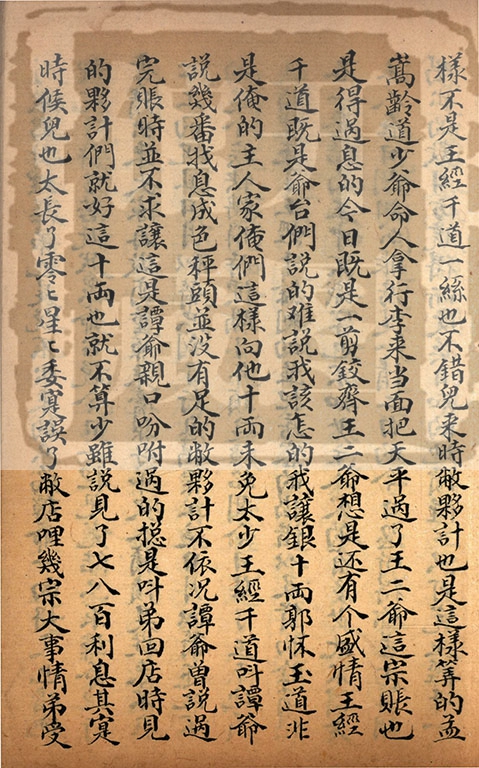 樣不是王經千道一絲也不錯兒來時敝夥計也是這樣筭的孟
嵩齡道少爺命人拿行李来当面把天平過了王二爺這宗賬也
是得過息的今日既是一剪鉸齊王二爺想是还有个盛情王經
千道既是爺台們說的难說我該怎的我讓銀十兩郭怀玉道非
是俺的主人家俺們這樣向他十兩未免太少王經千道叶譚爺
說幾番找息成色秤頭並没有足的敝夥計不依况譚爺曽説過
完賬時並不求讓這是譚爺親口吩咐過的揔是叶弟回店時見
的夥計們就好這十兩也就不算少雖説見了七八百利息其寔
時候兒也太長了零〻星〻委寔誤了敝店哩幾宗大事情弟受